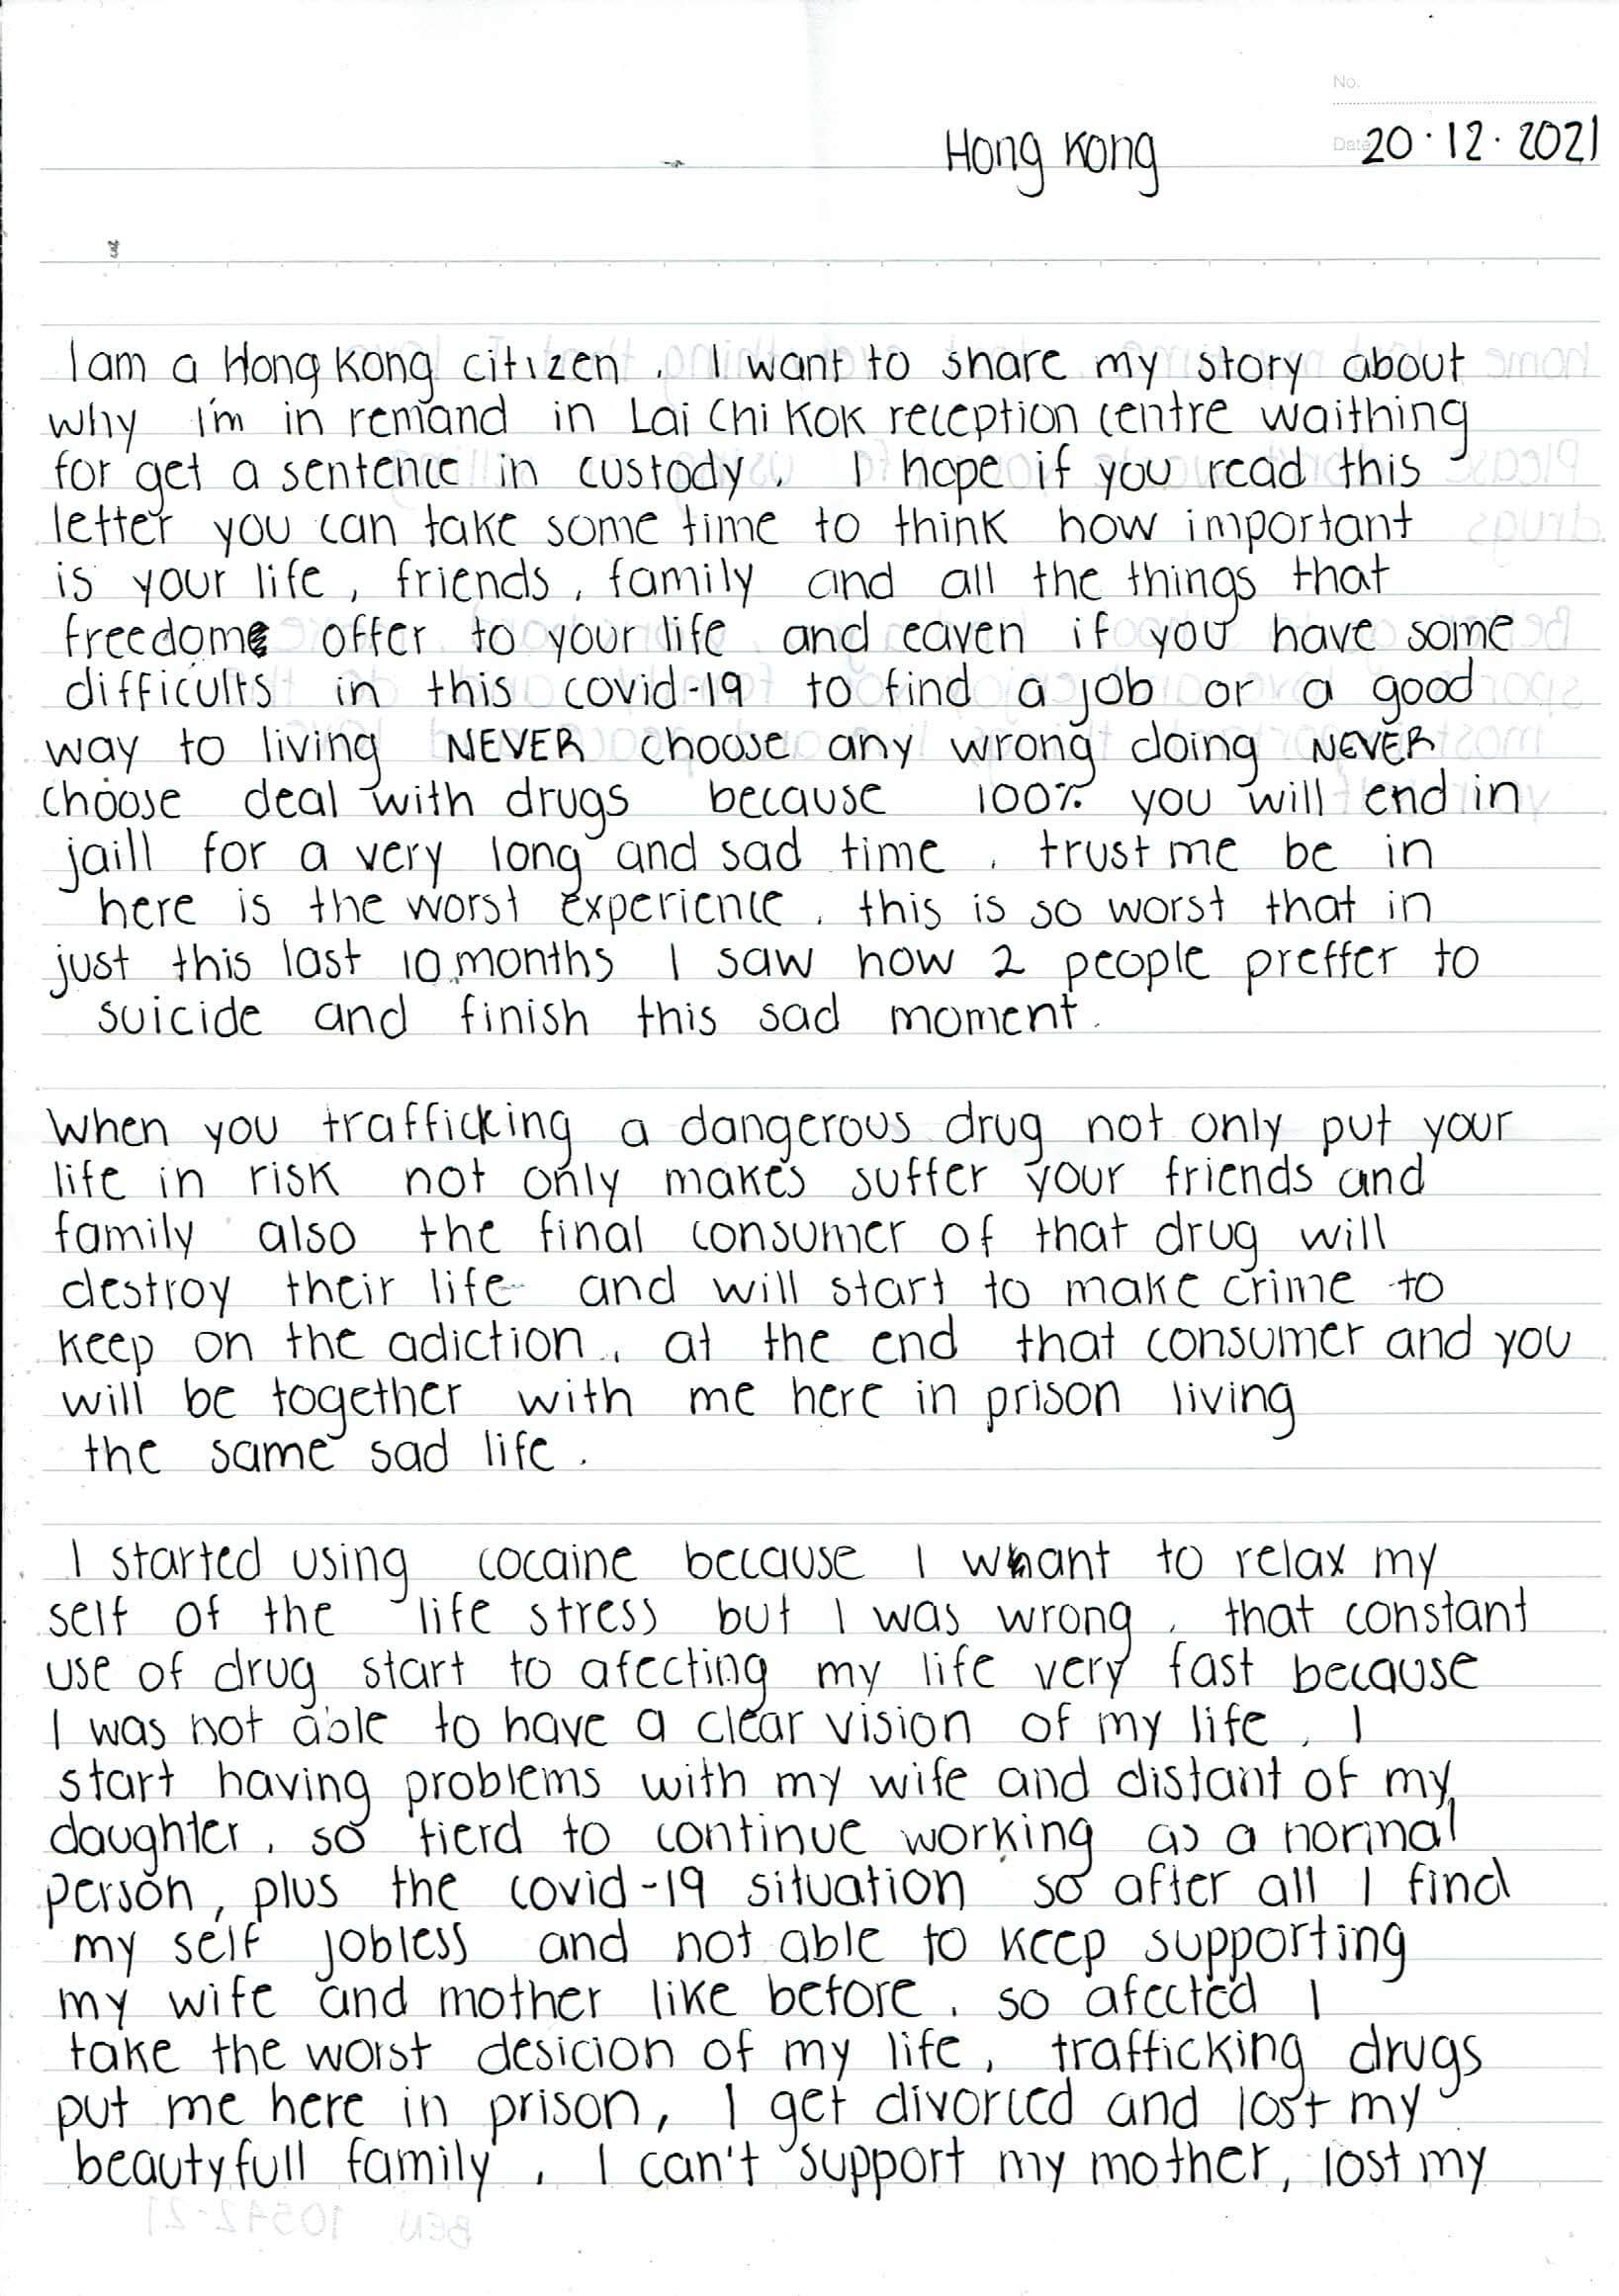 No.
Hong Kong Date 20.12.2021
I am a Hong Kong citizen. I want to share my story about
why I'm in remand in Lai Chi Kok reception centre waithing
for get a sentence in custody. I hope if you read this
letter you can take some time to think how important
is your life, friends, family and all the things that
freedom offer to your life and eaven if you have some
difficults in this covid-19 to find a job or a good
way to living NEVER choose any wrong doing NEVER
choose deal with drugs because 100% you will end in
jaill for a very long and sad time. trust me be in
here is the worst experience. this is so worst that in
just this last 10 months I saw how 2 people preffer to
suicide and finish this sad moment.
When you trafficking a dangerous drug not only put your
life in risk not only makes suffer your friends and
family also the final consumer of that drug will
destroy their life and will start to make crime to
keep on the adiction. at the end that consumer and you
will be together with me here in prison living
the same sad life.
I started using cocaine because I whant to relax my
self of the life stress but I was wrong. that constant
use of drug start to afecting my life very fast because
I was not able to have a clear vision of my life. I
start having problems with my wife and distant of my
daughter. so tierd to continue working as a normal
person, plus the covid-19 situation so after all I find
my self jobless and not able to keep supporting
my wife and mother like before. so afected I
take the worst desicion of my life. trafficking drugs
put me here in prison, I get divorced and lost my
beautyfull family. I can't support my mother, lost my
BEN 10542-21